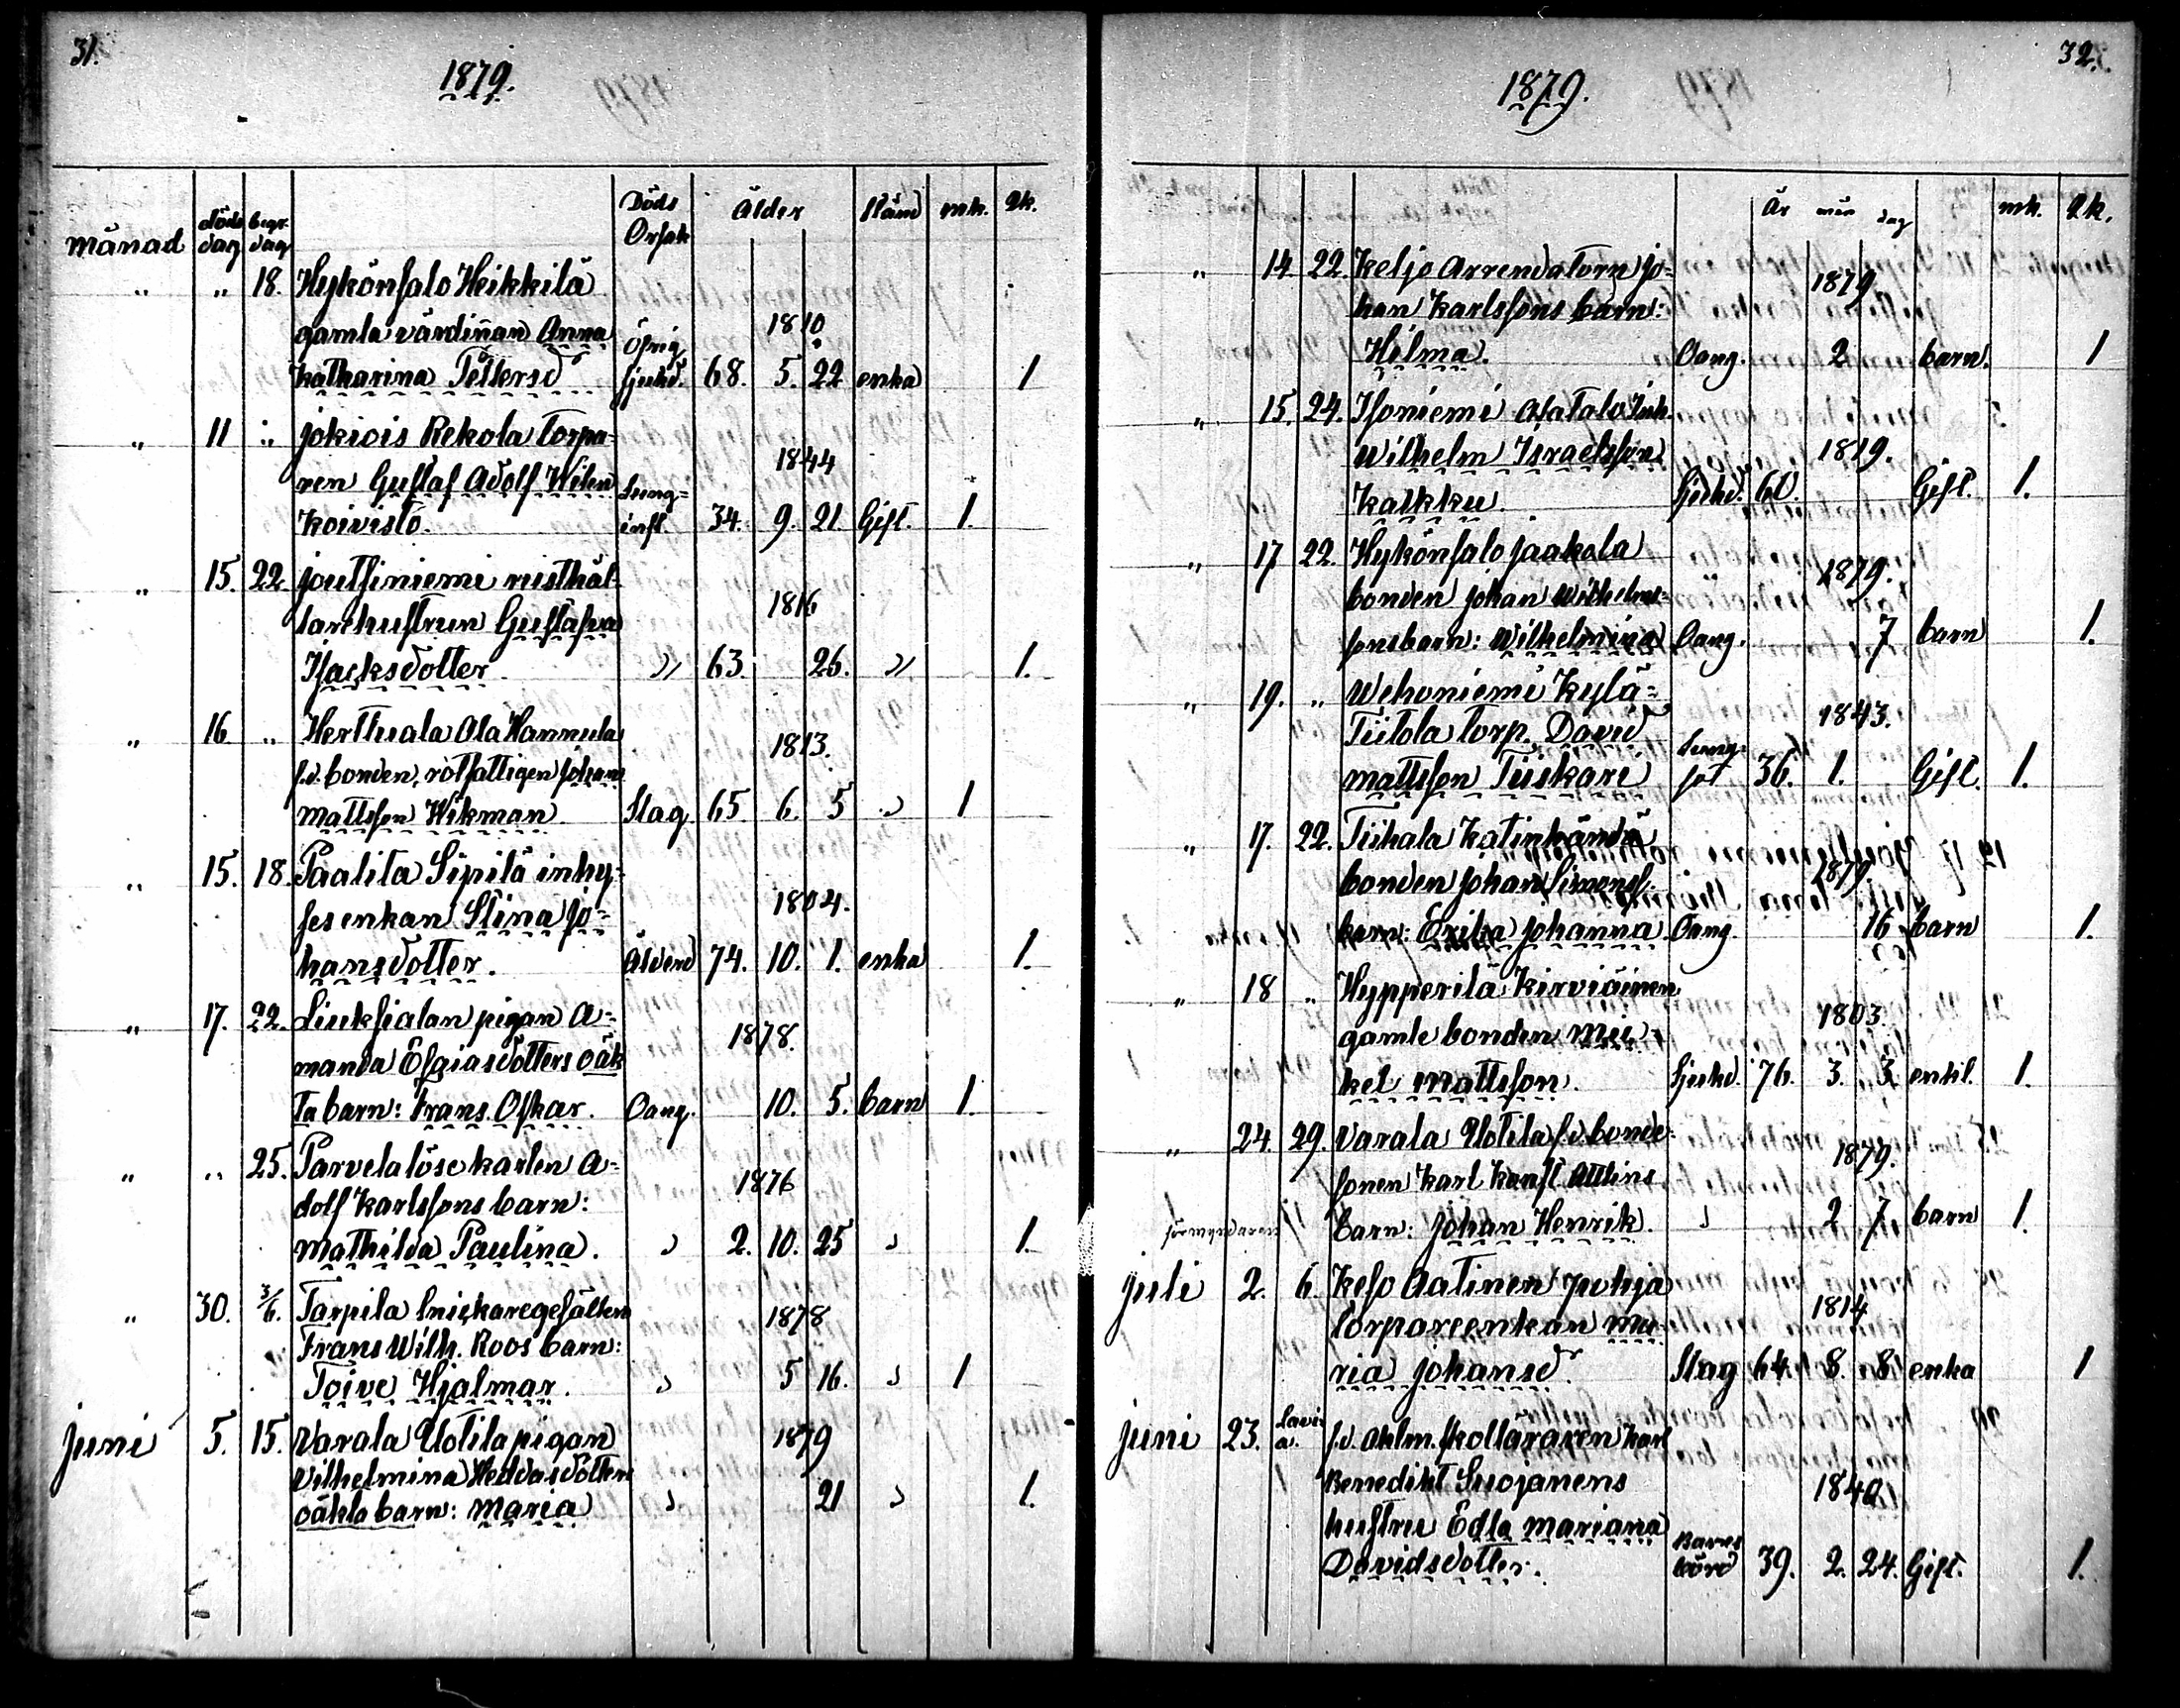 31.
1879.
månad döds dag begr. dag Döds Orsak Ålder Stånd mk. Qk.
" " 18. Hykönsalo Heikkilä
gamla värdinnan Anna 1810
Katharina Pettersd Öfrig sjukd. 68. 5. 22 enka 1
" 11 " jokiois Rekola Torpa-
ren Gustaf Adolf Wilen 1844
Koivisto. Lung- infl. 34. 9. 21. Gift. 1.
" 15. 22. joutsiniemi rusthål-
larehustrun Gustafva 1816
Isacksdotter " 63. 26. " 1.
" 16 " Herttuala Ala Hannula 1813.
f.d. bonden, rotfattigen johan
mattsson Wikman. Slag 65. 6. 5 " 1
" 15. 18. Paalila Sipilä inhy-
ses enkan Stina jo- 1804.
hansdotter. Ålderd 74. 10. 1. enka 1.
" 17. 22. Liuksialan pigan A-
manda Esaiasdotters oäk 1878.
ta barn: Frans Oskar. Oang. 10. 5. barn 1.
" " 25. Parvela löse karlen A-
dolf Karlssons barn: 1876
mathilda Paulina. " 2. 10. 25 " 1.
" 30. 3/6. Tarpila snickaregesällen 1878
Frans Wilh. Roos barn:
Toive Hjalmar. " 5 16. " 1
juni 5. 15. Varala Uotila pigan 1879
Vilhelmina Heddasdotters
oäkta barn: maria " 21 " 1.
32.
1879.
År mån dag mk. Qk.
" 14. 22. Keljo Arrendatorn jo-
han Karlssons barn: 1879
Hilma. Oang. 2 barn. 1
" 15. 24. Isoniemi Alatalo Inh.
Wilhelm Israelsson 1819.
Kalkku. Sjukd. 60. Gift. 1.
" 17 22. Hykönsalo jaakola
bonden johan Wilhelms- 1879.
sons barn: Wilhelmina Oang. 7 barn 1.
" 19. " Wehoniemi Kylä-
Tiitola torp. David 1843.
mattsson Tiiskari Lung sot 36. 1. Gift. 1.
" 17. 22. Tiihala
bonden johan Simonss. 1879.
barn: Erika johanna Oang. 16 barn 1.
" 18 " Hypperilä Kirviäinen
gamle bonden mic- 1803.
kel mattsson. Sjukd. 76. 3. 3 enkl. 1.
" 24. 29. Varala Uotila f.d. bonde-
sonen Karl Konst. 1879.
förmyndaren barn: johan Henrik. " 2 7 barn 1.
juli 2. 6. Keso Aatinen pohja
torpareenkan ma- 1814
ria johansd. Slag 64. 8. 8 enka 1
juni 23. f.d. skolläraren Karl
Benedikt Suojanens 1840
hustru Edla mariana
Davidsdotter. Barns börd 39. 2. 24. Gift. 1.